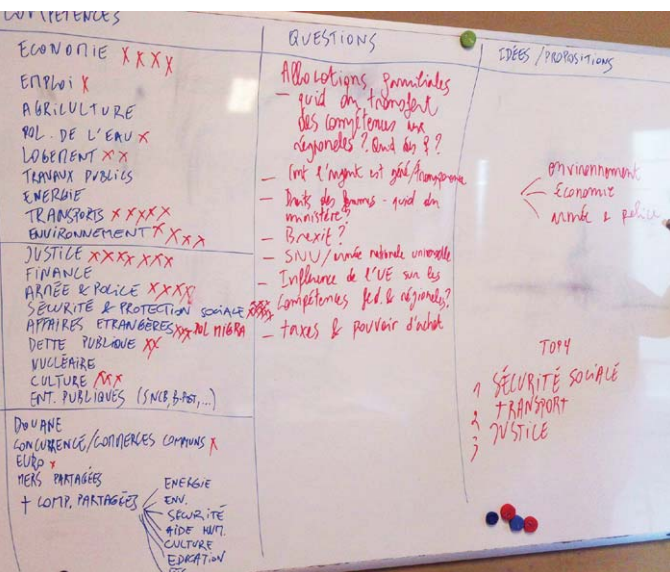 COMPÉTENCES
ECONOMIE XXXX
EMPLOI X
AGRICULTURE
POL. DE L'EAU X
LOGEMENT XX
TRAVAUX PUBLICS
ENERGIE
TRANSPORTS XXXXX
ENVIRONNEMENT XXXX
JUSTICE XXXX XXX
FINANCE
ARMÉE & POLICE XXXX
SÉCURITÉ & PROTECTION SOCIALE XXXX
AFFAIRES ETRANGÈRES XX POL MIGRA
DETTE PUBLIQUE XX
NUCLÉAIRE
CULTURE XXX
ENT. PUBLIQUES (SNCB, B-POST,...)
DOUANE
CONCURRENCE/COMMERCES COMMUNS X
EURO X
MERS PARTAGÉES
+ COMP. PARTAGÉES
ENERGIE
ENV.
SÉCURITÉ
AIDE HUM.
CULTURE
EDUCATION
ETC
QUESTIONS
Allocations familiales
- quid du transfert
des compétences aux
régionales ? Quid des ?
- Cmt l'argent est géré/transparence
- Droits des femmes - quid du
ministère ?
- Brexit ?
- SNU/armée nationale universelle
- Influence de l'UE sur les
compétences fed. & régionales ?
- taxes & pouvoir d'achat
IDÉES/PROPOSITIONS
environnement
économie
armée & police
TOP
1 SÉCURITÉ SOCIALE
2 TRANSPORT
3 JUSTICE